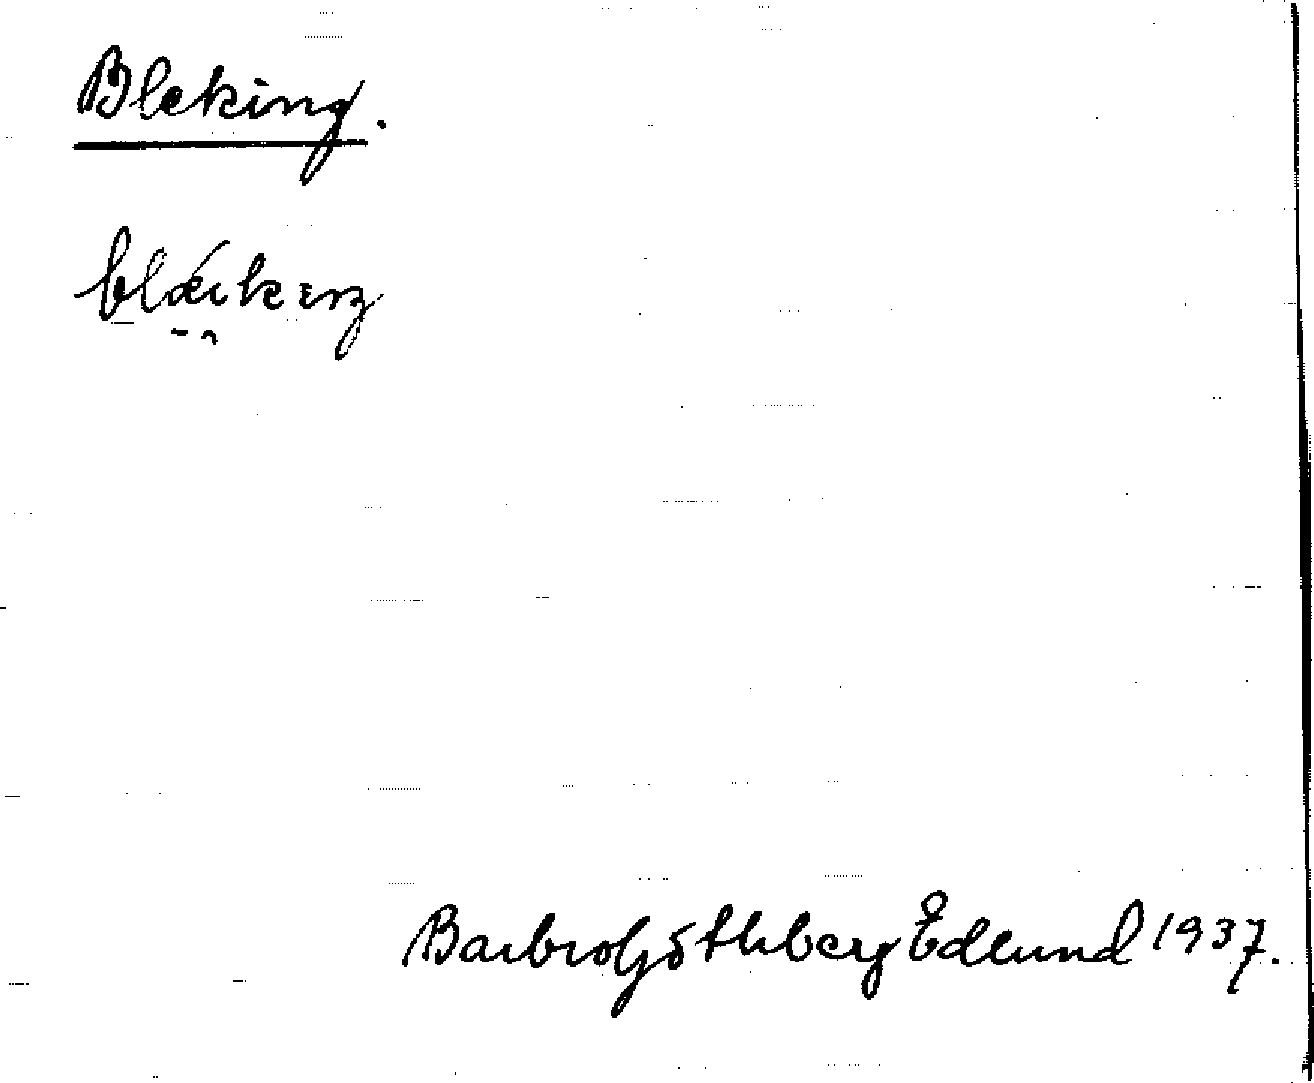 Bleking.
Barbro Göthberg Edlund 1937.